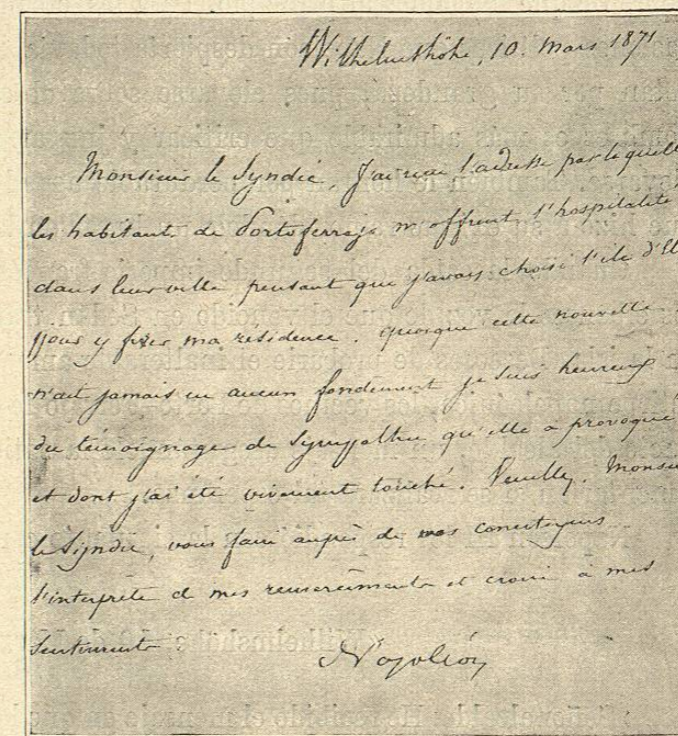 Wilhelmshöhe, 10. Mars 1871
Monsieur le Syndic, J'ai reçu l'adresse par laquelle
les habitants de Portoferrajo m'offrent l'hospitalité
dans leur ville pensant que j'avais choisi l'île d'El
pour y fixer ma résidence. quoique cette nouvelle
n'ait jamais eu aucun fondement je suis heureux
du témoignage de Sympathie qu'elle a provoqué
et dont j'ai été vivement touché. Veuillez, Monsie
le Syndic, vous faire auprès de vos concitoyens
l'interprète de mes remerciements et croire à mes
Sentiments.
Napoléon